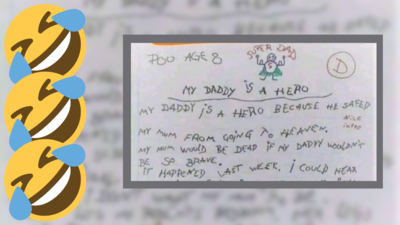 POO AGE 8
SUPER DAD
D
MY DADDY IS A HERO
MY DADDY IS A HERO BECAUSE HE SAFED
MY MUM FROM GOING TO HEAVEN.
MY MUM WOULD BE DEAD IF MY DADDY WOULDN'T
BE SO BRAVE.
IT HAPPENED LAST WEEK. I COULD HEAR